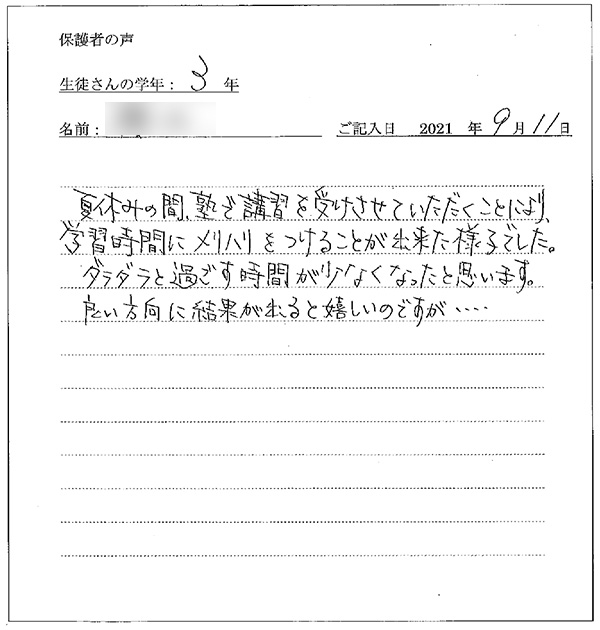 保護者の声
生徒さんの学年： 3 年
名前：
ご記入日 2021 年 9 月 11 日
夏休みの間、塾で講習を受けさせていただくことにより、
学習時間にメリハリをつけることが出来た様子でした。
ダラダラと過ごす時間が少なくなったと思います。
良い方向に結果が出ると嬉しいのですが・・・・